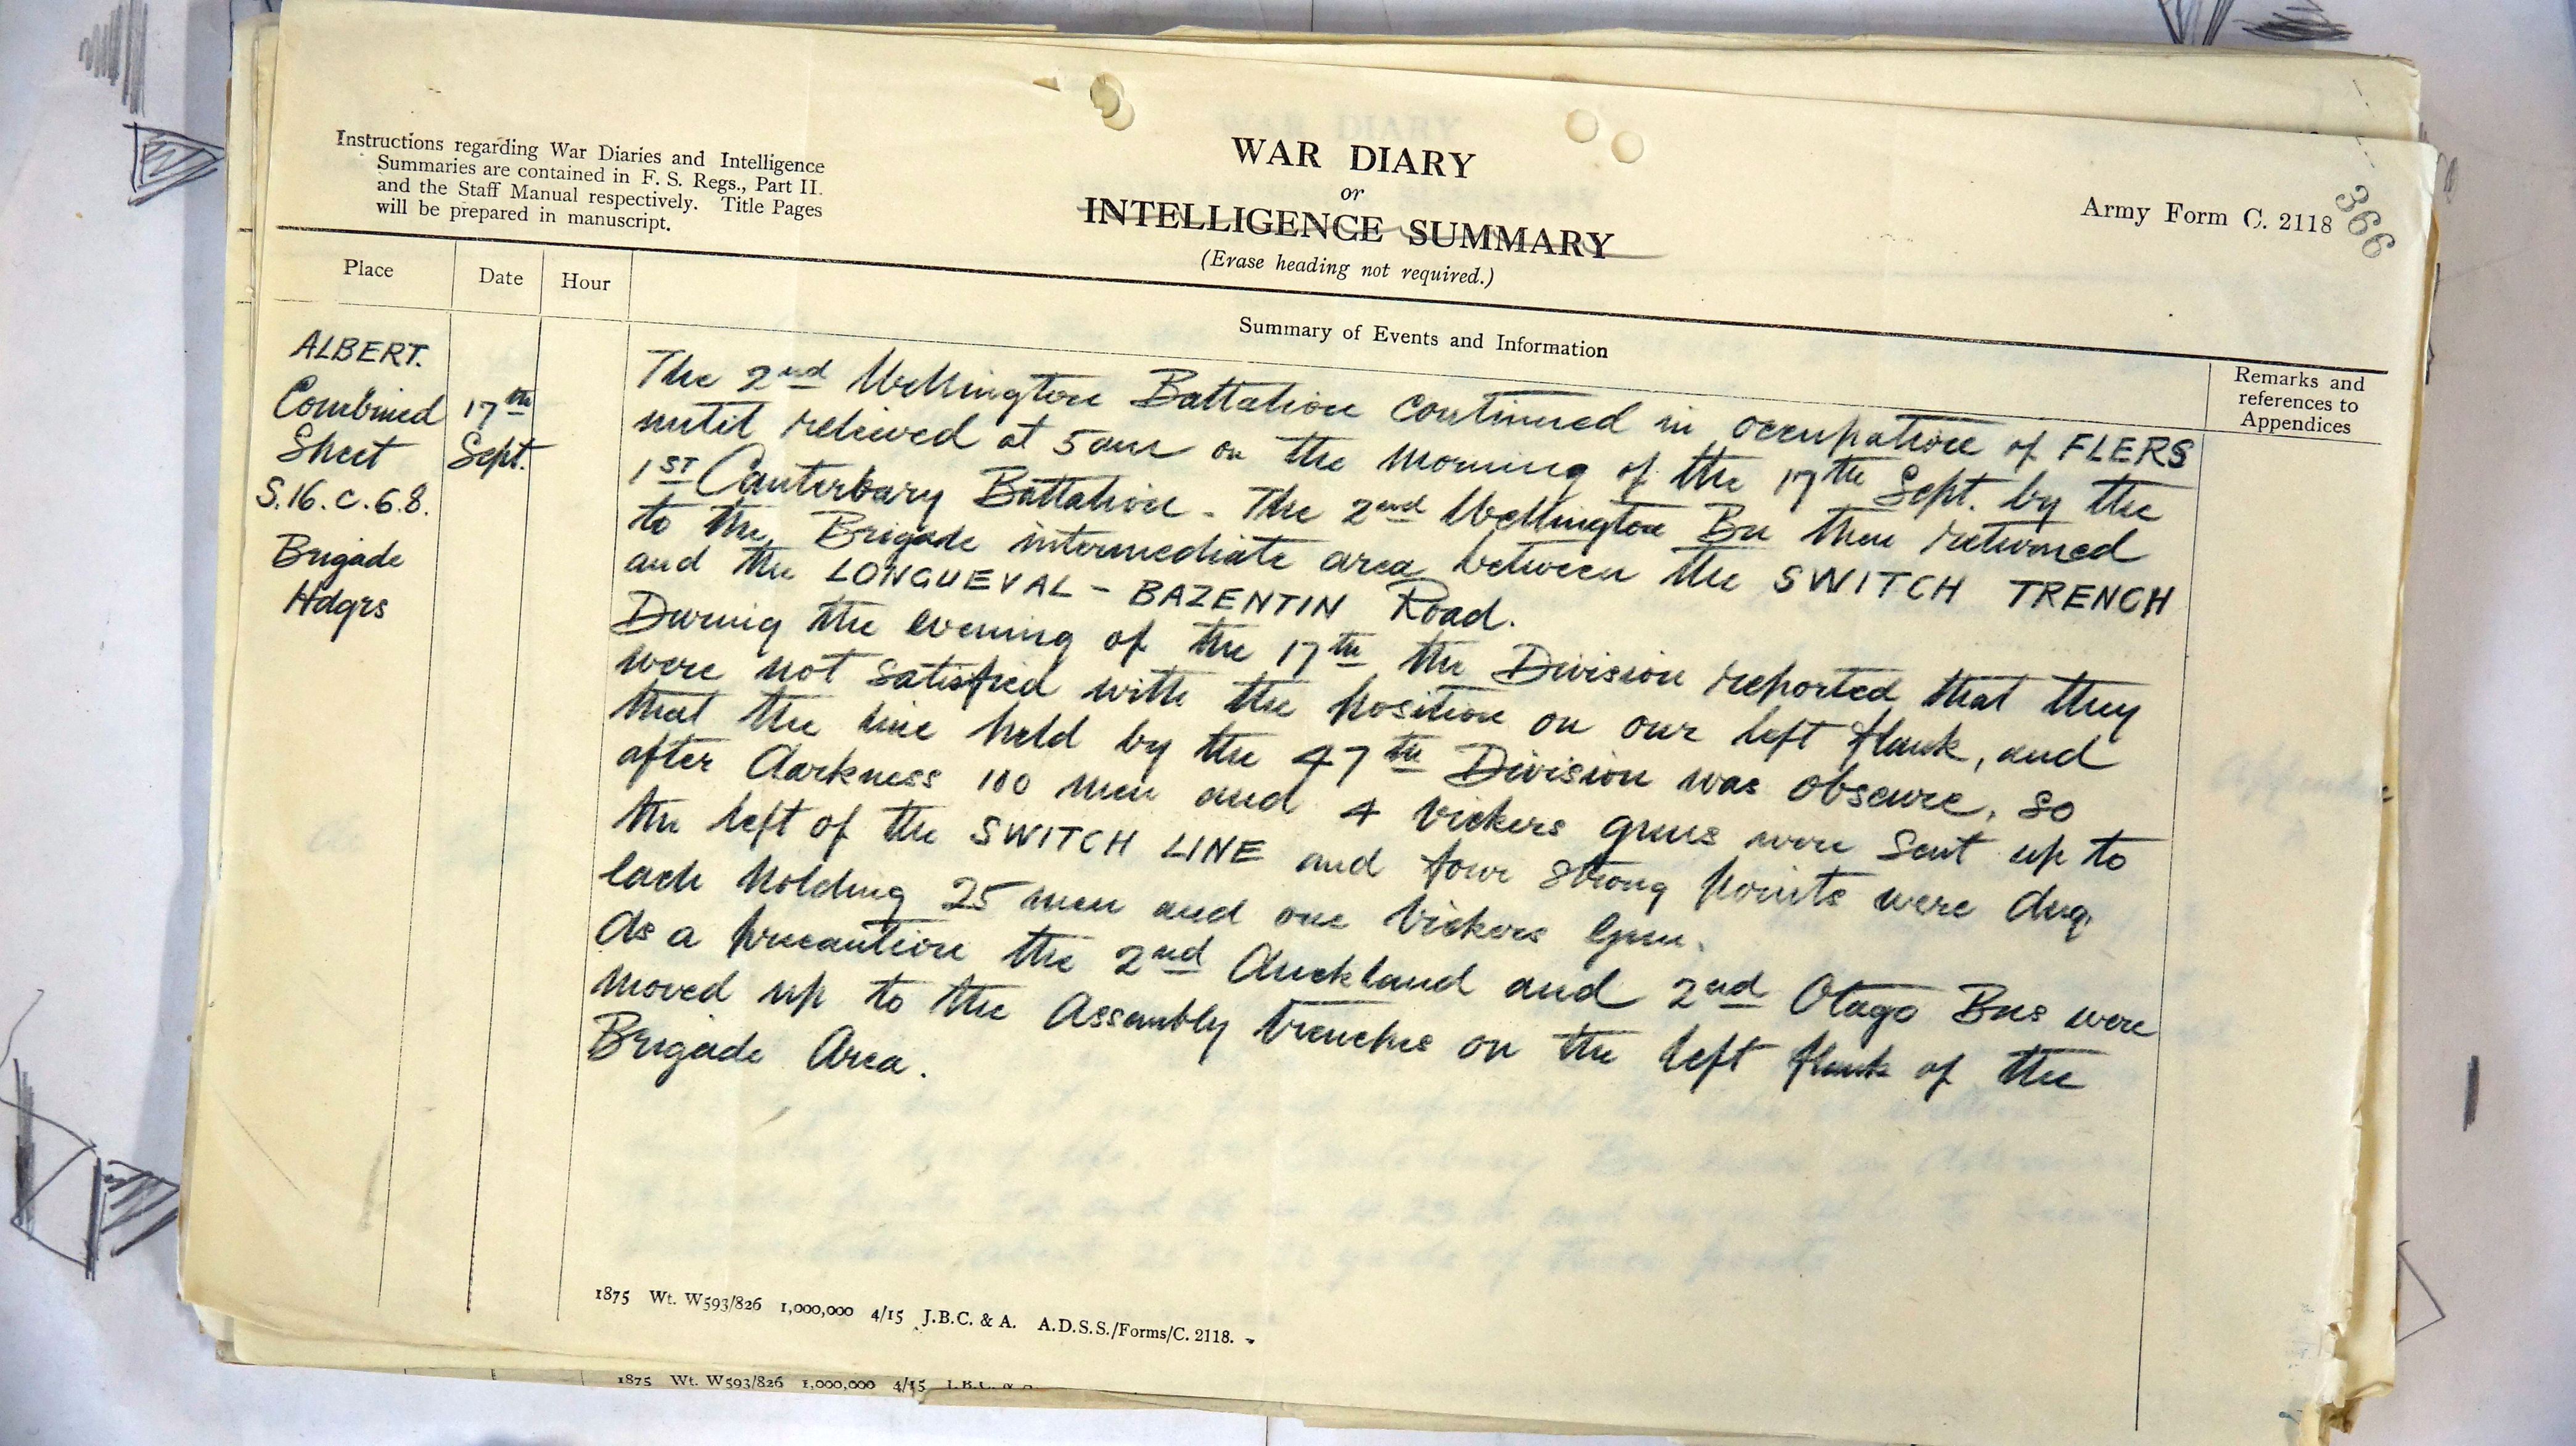 Instructions regarding War Diaries and Intelligence
Summaries are contained in F. S. Regs., Part II.
and the Staff Manual respectively. Title Pages
will be prepared in manuscript.
WAR DIARY
or
INTELLIGENCE SUMMARY
(Erase heading not required.)
Army Form C. 2118
366
Place
Date
Hour
Summary of Events and Information
Remarks and
references to
Appendices
ALBERT.
Combined
Sheet
S.16.c.6.8.
Brigade
Hdqrs
17th
Sept.
The 2nd Wellington Battalion continued in occupation of FLERS
until relieved at 5am on the morning of the 17th Sept. by the
1ST Canterbary Battalion - The 2nd Wellington Bn then returned
to the Brigade intermediate area between the SWITCH TRENCH
and the LONGUEVAL - BAZENTIN Road.
During the evening of the 17th the Division reported that they
were not satisfied with the position on our left flank, and
that the line held by the 47th Division was obscure, so
after darkness 100 men and 4 Vickers guns were sent up to
the left of the SWITCH LINE and four strong points were dug,
each holding 25 men and one Vickers Gun.
As a precaution the 2nd Auckland and 2nd Otago Bns were
moved up to the Assembly trenches on the left flank of the
Brigade Area.
1875 Wt. W593/826 1,000,000 4/15 J.B.C. & A. A.D.S.S./Forms/C. 2118.
1875 Wt. W593/826 1,000,000 4/15